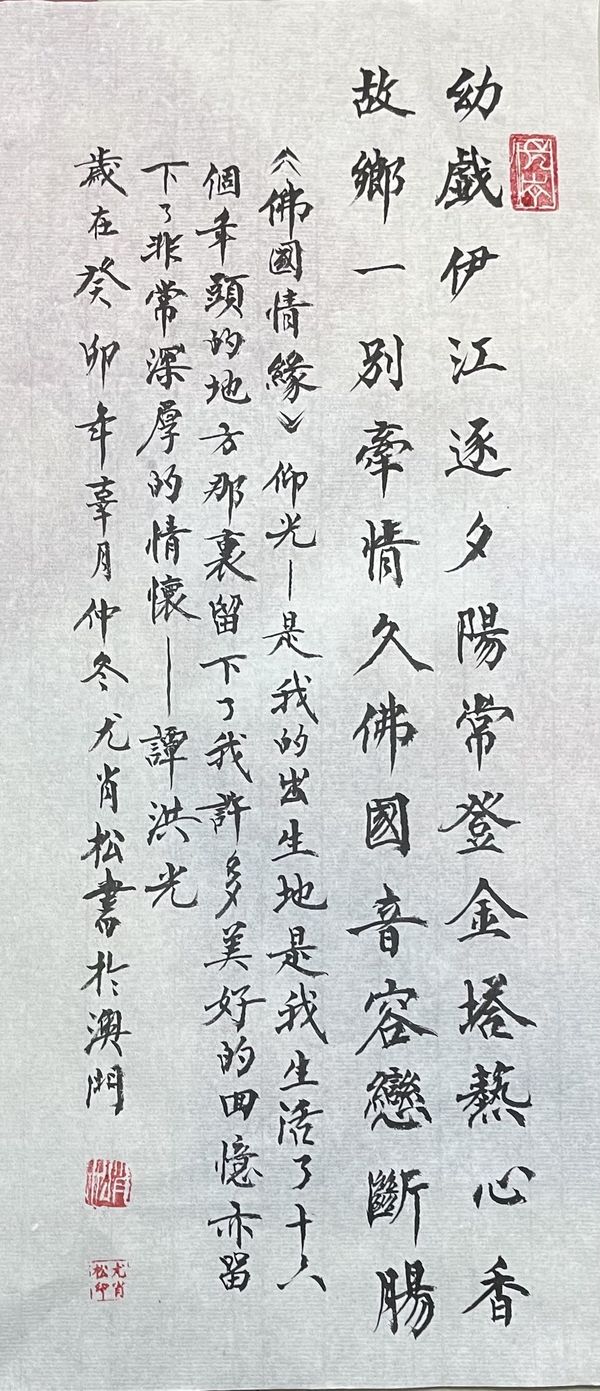 幼戲伊江逐夕陽常登金塔爇心香
故鄉一別牽情久佛國音容戀斷腸
《佛國情緣》仰光—是我的出生地是我生活了十六
個年頭的地方那裏留下了我許多美好的回憶亦留
下了非常深厚的情懷—譚洪光
歲在癸卯年辜月仲冬尤肖松書於澳門
肖松
尤肖松印